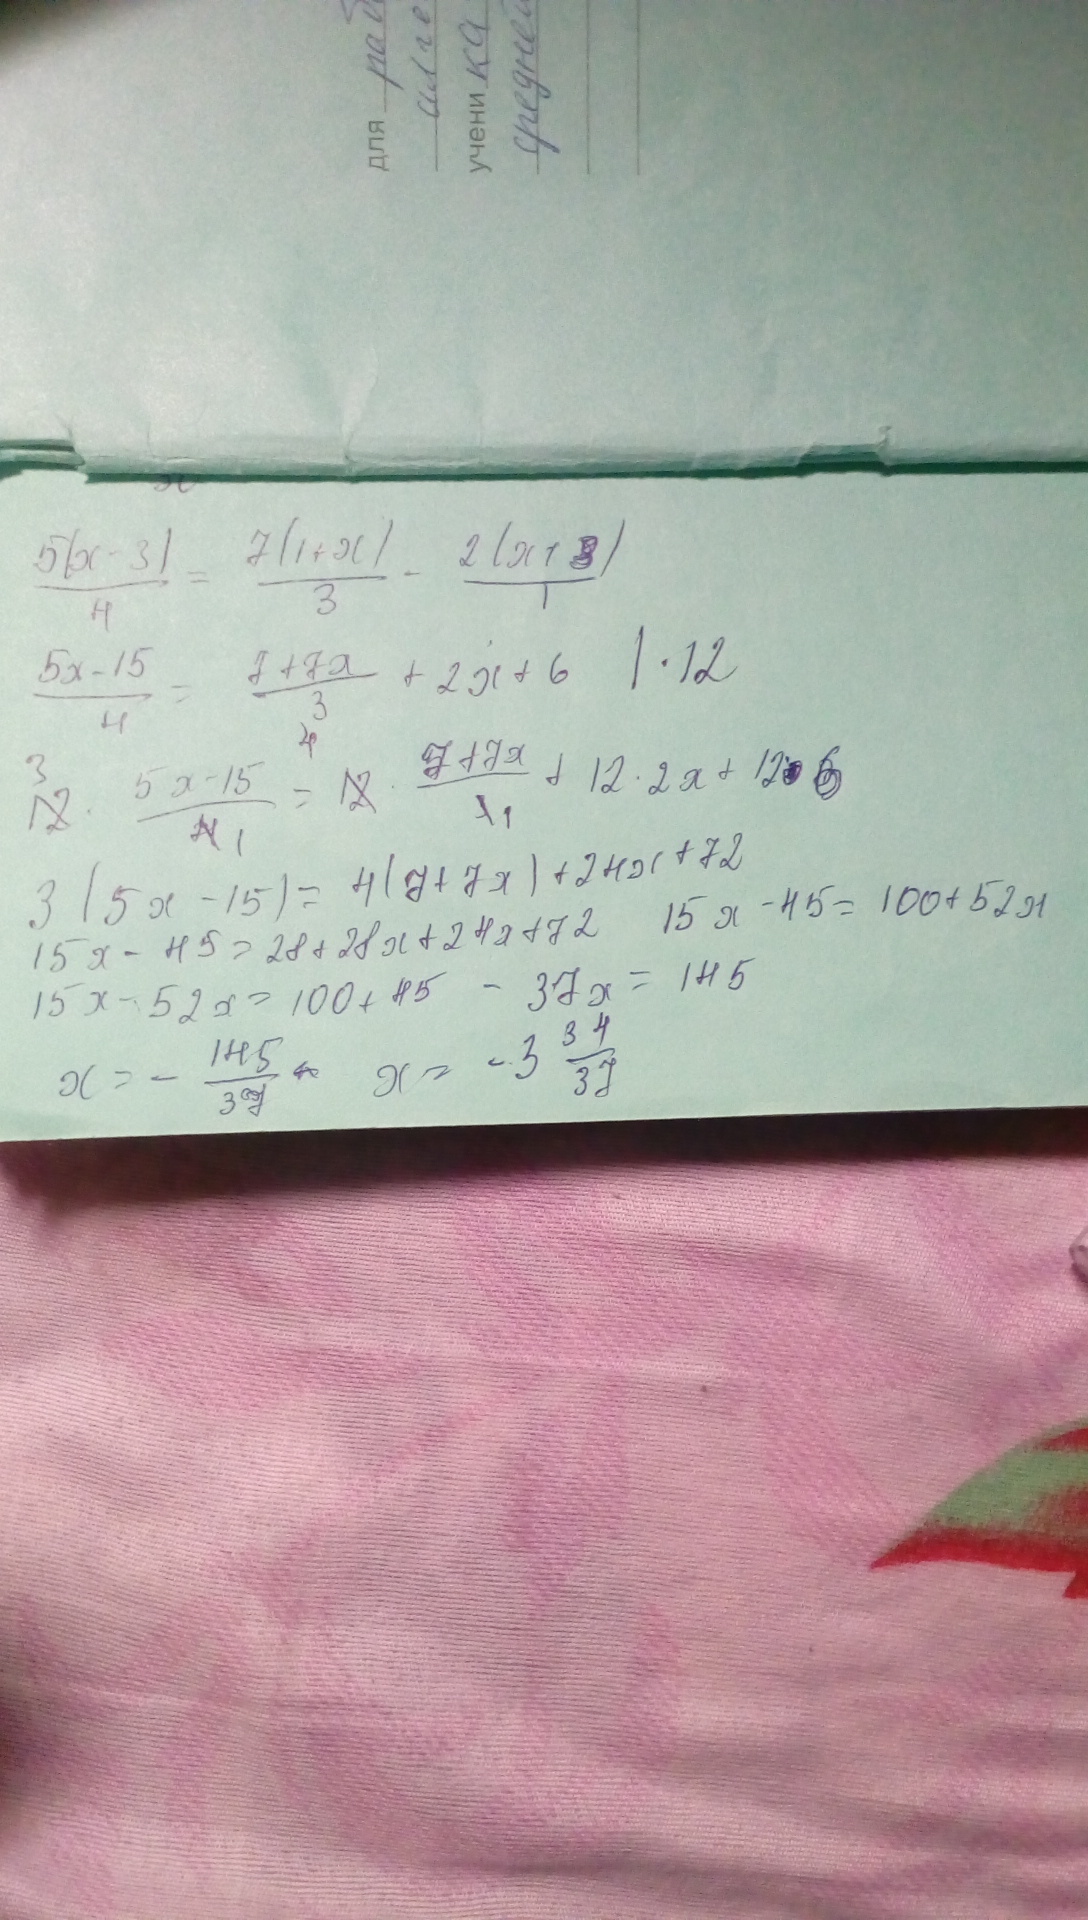 для
учени ка
средней
5(x-3)/4 = 7(1+x)/3 - 2(x+3)/1
5x-15/4 = 7+7x/3 + 2x+6 | · 12
3 4
12 · 5x-15/4 1 = 12 · 7+7x/3 1 + 12 · 2x + 12 · 6
3(5x-15) = 4(7+7x)+24x+72
15x-45=28+28x+24x+72 15x-45=100+52x
15x-52x=100+45 -37x=145
x=-145/37 x=-3 34/37